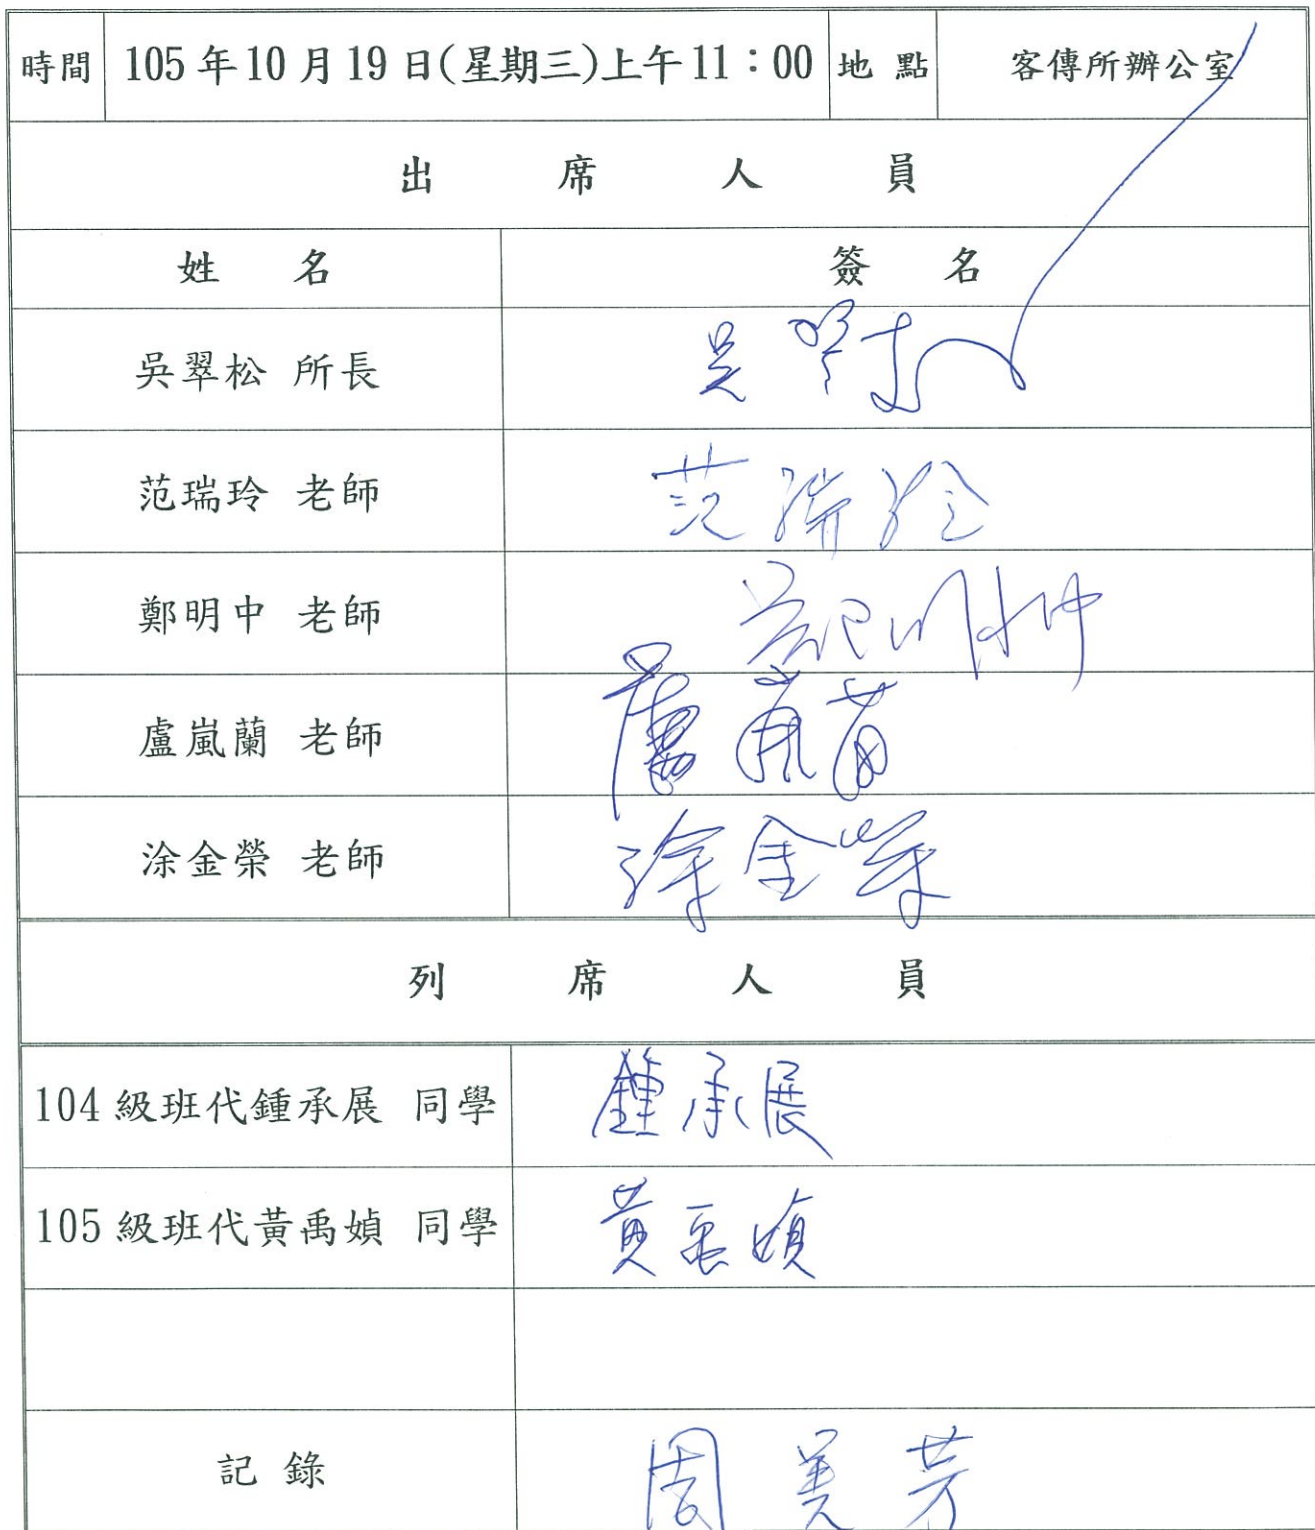 時間 105年10月19日(星期三)上午11：00 地點 客傳所辦公室
出席人員
姓名 簽名
吳翠松 所長 吳翠松
范瑞玲 老師 范瑞玲
鄭明中 老師 鄭明中
盧嵐蘭 老師 盧嵐蘭
涂金榮 老師 涂金榮
列席人員
104級班代鍾承展 同學 鍾承展
105級班代黃禹媜 同學 黃禹媜
記錄 周美芳